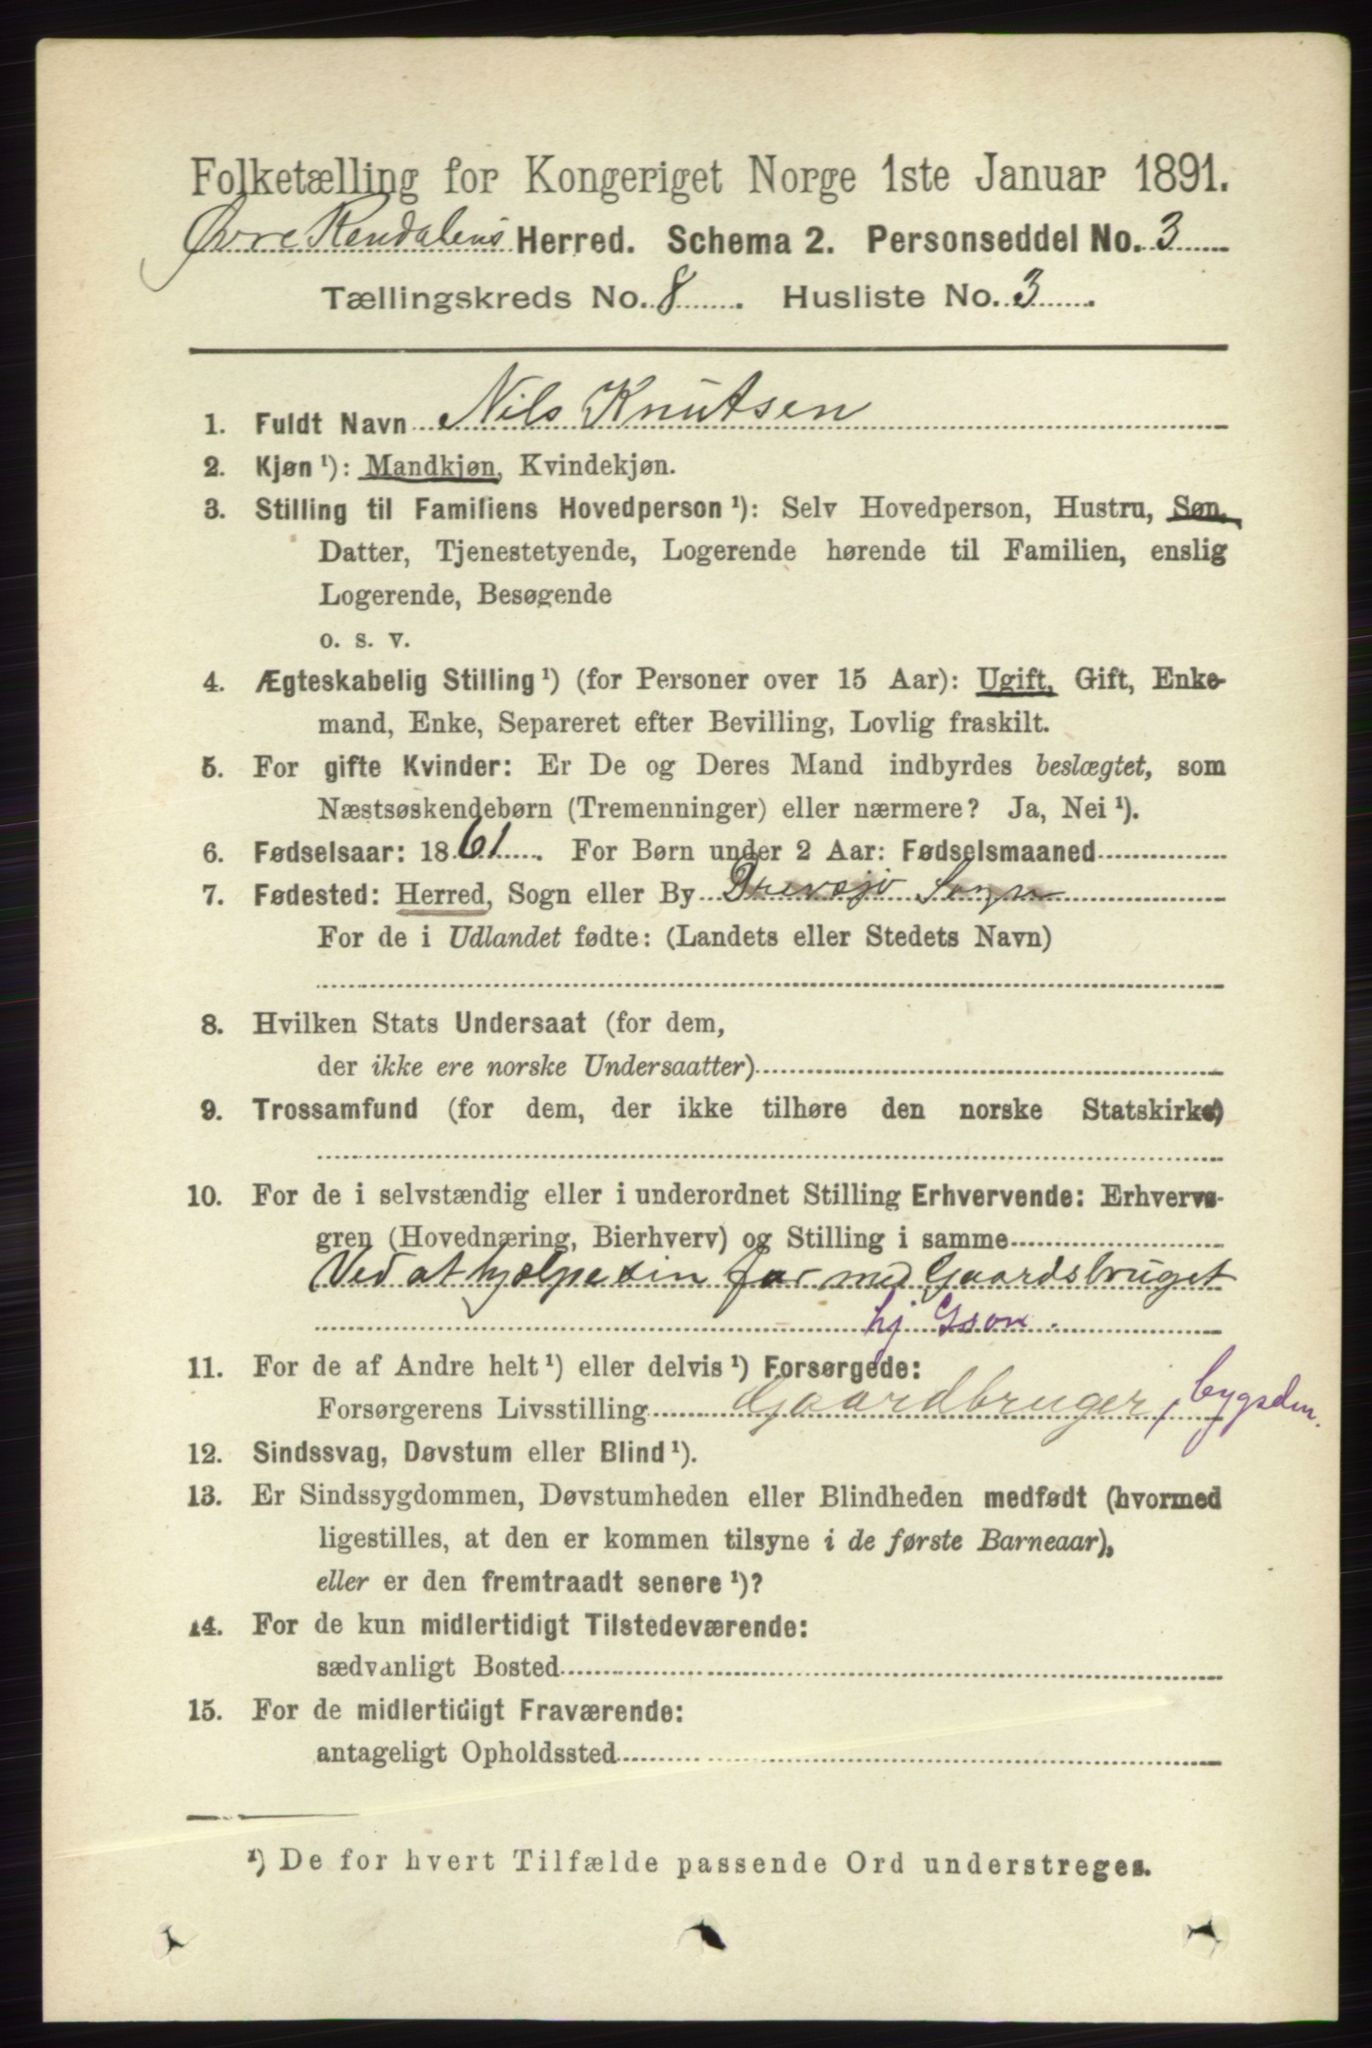 Folketælling for Kongeriget Norge 1ste Januar 1891.
Øvre Rendalens Herred. Schema 2. Personseddel No. 3
Tællingskreds No. 8. Husliste No. 3.
1. Fuldt Navn Nils Knutsen
2. Kjøn ¹): Mandkjøn, Kvindekjøn.
3. Stilling til Familiens Hovedperson ¹): Selv Hovedperson, Hustru, Søn,
Datter, Tjenestetyende, Logerende hørende til Familien, enslig
Logerende, Besøgende
o. s. v.
4. Ægteskabelig Stilling ¹) (for Personer over 15 Aar): Ugift, Gift, Enke-
mand, Enke, Separeret efter Bevilling, Lovlig fraskilt.
5. For gifte Kvinder: Er De og Deres Mand indbyrdes beslægtet, som
Næstsøskendebørn (Tremenninger) eller nærmere? Ja, Nei ¹).
6. Fødselsaar: 1861. For Børn under 2 Aar: Fødselsmaaned
7. Fødested: Herred, Sogn eller By Drevsjø Sogn
For de i Udlandet fødte: (Landets eller Stedets Navn)
8. Hvilken Stats Undersaat (for dem,
der ikke ere norske Undersaatter)
9. Trossamfund (for dem, der ikke tilhøre den norske Statskirke)
10. For de i selvstændig eller i underordnet Stilling Erhvervende: Erhvervs-
gren (Hovednæring, Bierhverv) og Stilling i samme
Ved at hjælpe sin far med Gaardsbruget
hj Gson.
11. For de af Andre helt ¹) eller delvis ¹) Forsørgede:
Forsørgerens Livsstilling Gaardbruger, bygsdm.
12. Sindssvag, Døvstum eller Blind ¹).
13. Er Sindssygdommen, Døvstumheden eller Blindheden medfødt (hvormed
ligestilles, at den er kommen tilsyne i de første Barneaar),
eller er den fremtraadt senere ¹)?
14. For de kun midlertidigt Tilstedeværende:
sædvanligt Bosted
15. For de midlertidigt Fraværende:
antageligt Opholdssted
¹) De for hvert Tilfælde passende Ord understreges.